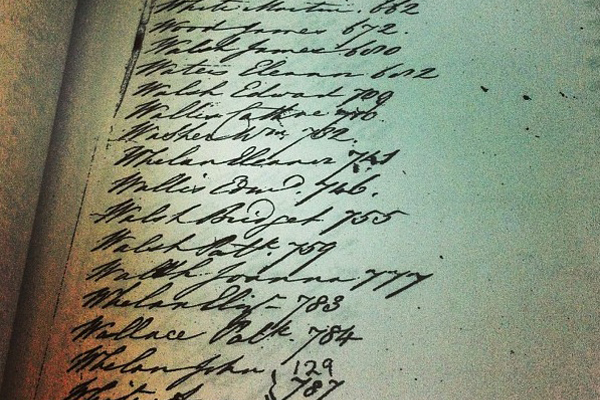 White Martin. 662
Wood James 672.
Walsh James 680
Waters Eleanor 692
Walsh Edward 709
Wallis Cathne 710.
Washer Wm. 732.
Whelan Eleanor 741
Wallis Edmd. 746.
Walsh Bridget 755
Walsh Patk. 759
Walsh Joanna 777
Whelan Elizt 783
Wallace Patk. 784
Whelan John { 129
787